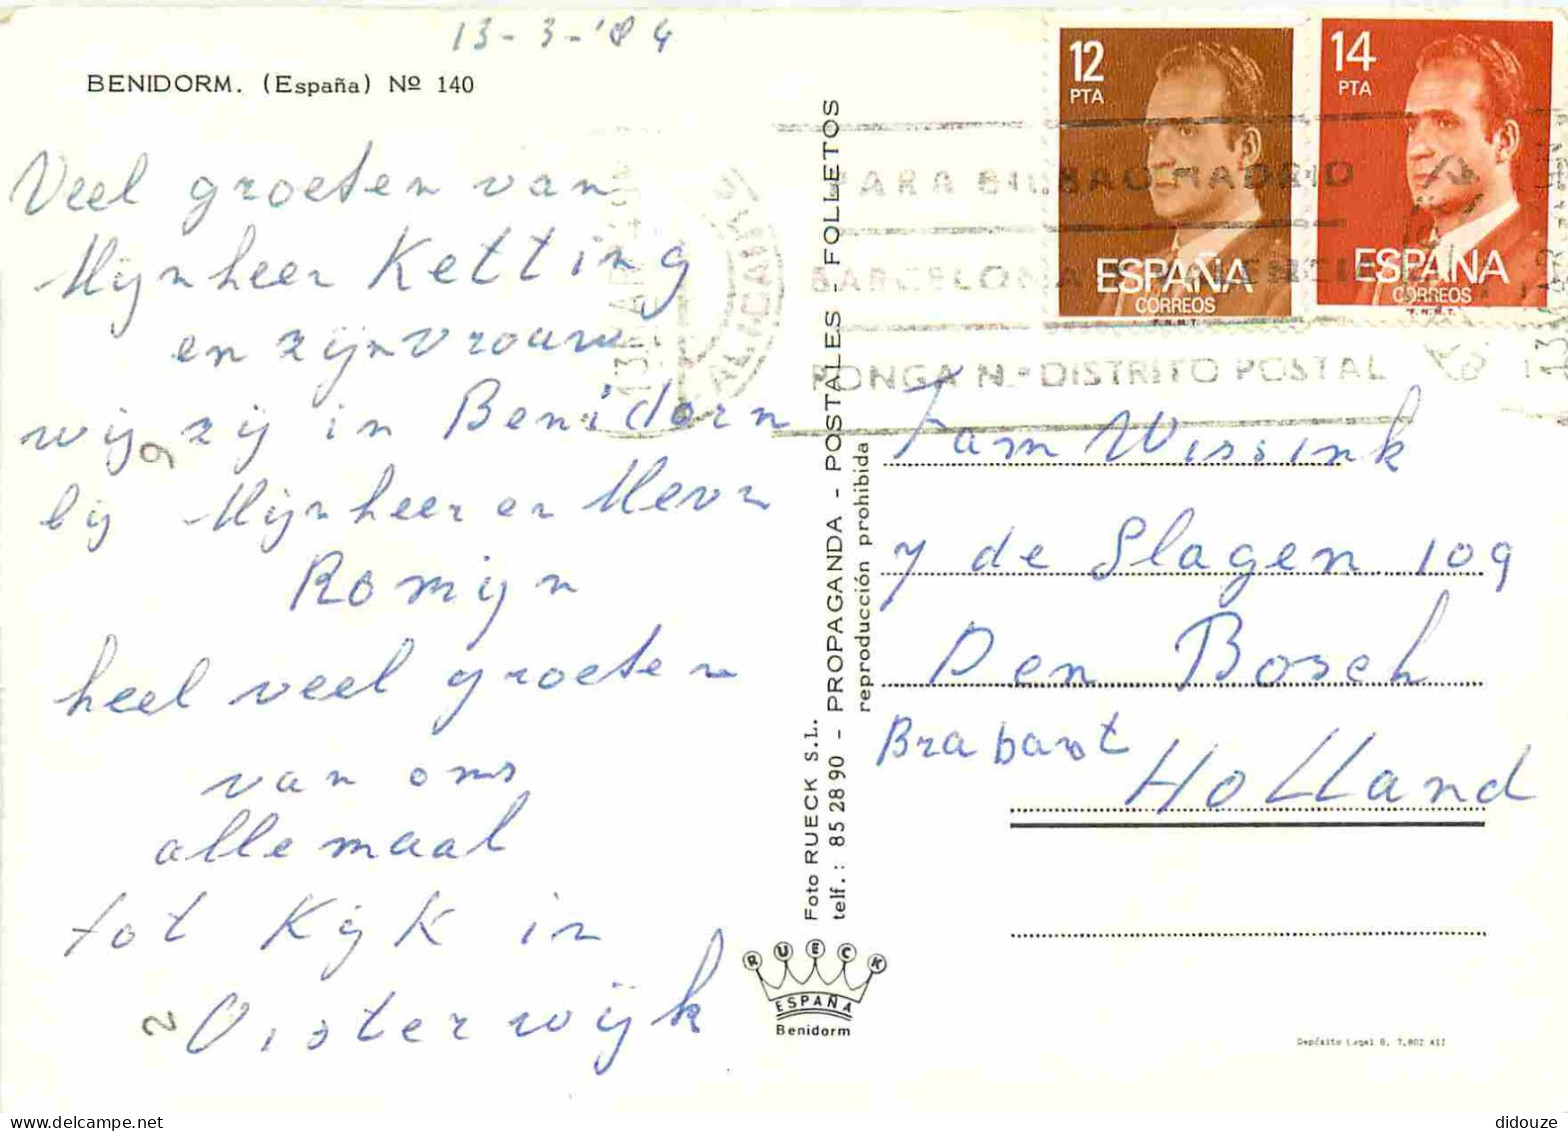 13-3-'84
BENIDORM. (España) Nº 140
Veel groeten van
Mynheer Ketting
en zijn vrouw
wij zij in Benidorn
bij Mijnheer en Mevr
Romijn
heel veel groeten
van oms
allemaal
tot Kijk in
Oisterwijk
9
2
12
PTA
ESPAÑA
CORREOS
F.N.M.T.
14
PTA
ESPAÑA
CORREOS
F.N.M.T.
PARA BILBAO MADRID
BARCELONA VALENCIA
PONGA N.º DISTRITO POSTAL
ALICANTE
Foto RUECK S.L.
telf.: 85 28 90 - PROPAGANDA - POSTALES - FOLLETOS
reproducción prohibida
Fam Wissink
y de Slagen 109
Den Bosch
Brabant
Holland
RUECK
ESPAÑA
Benidorm
didouze